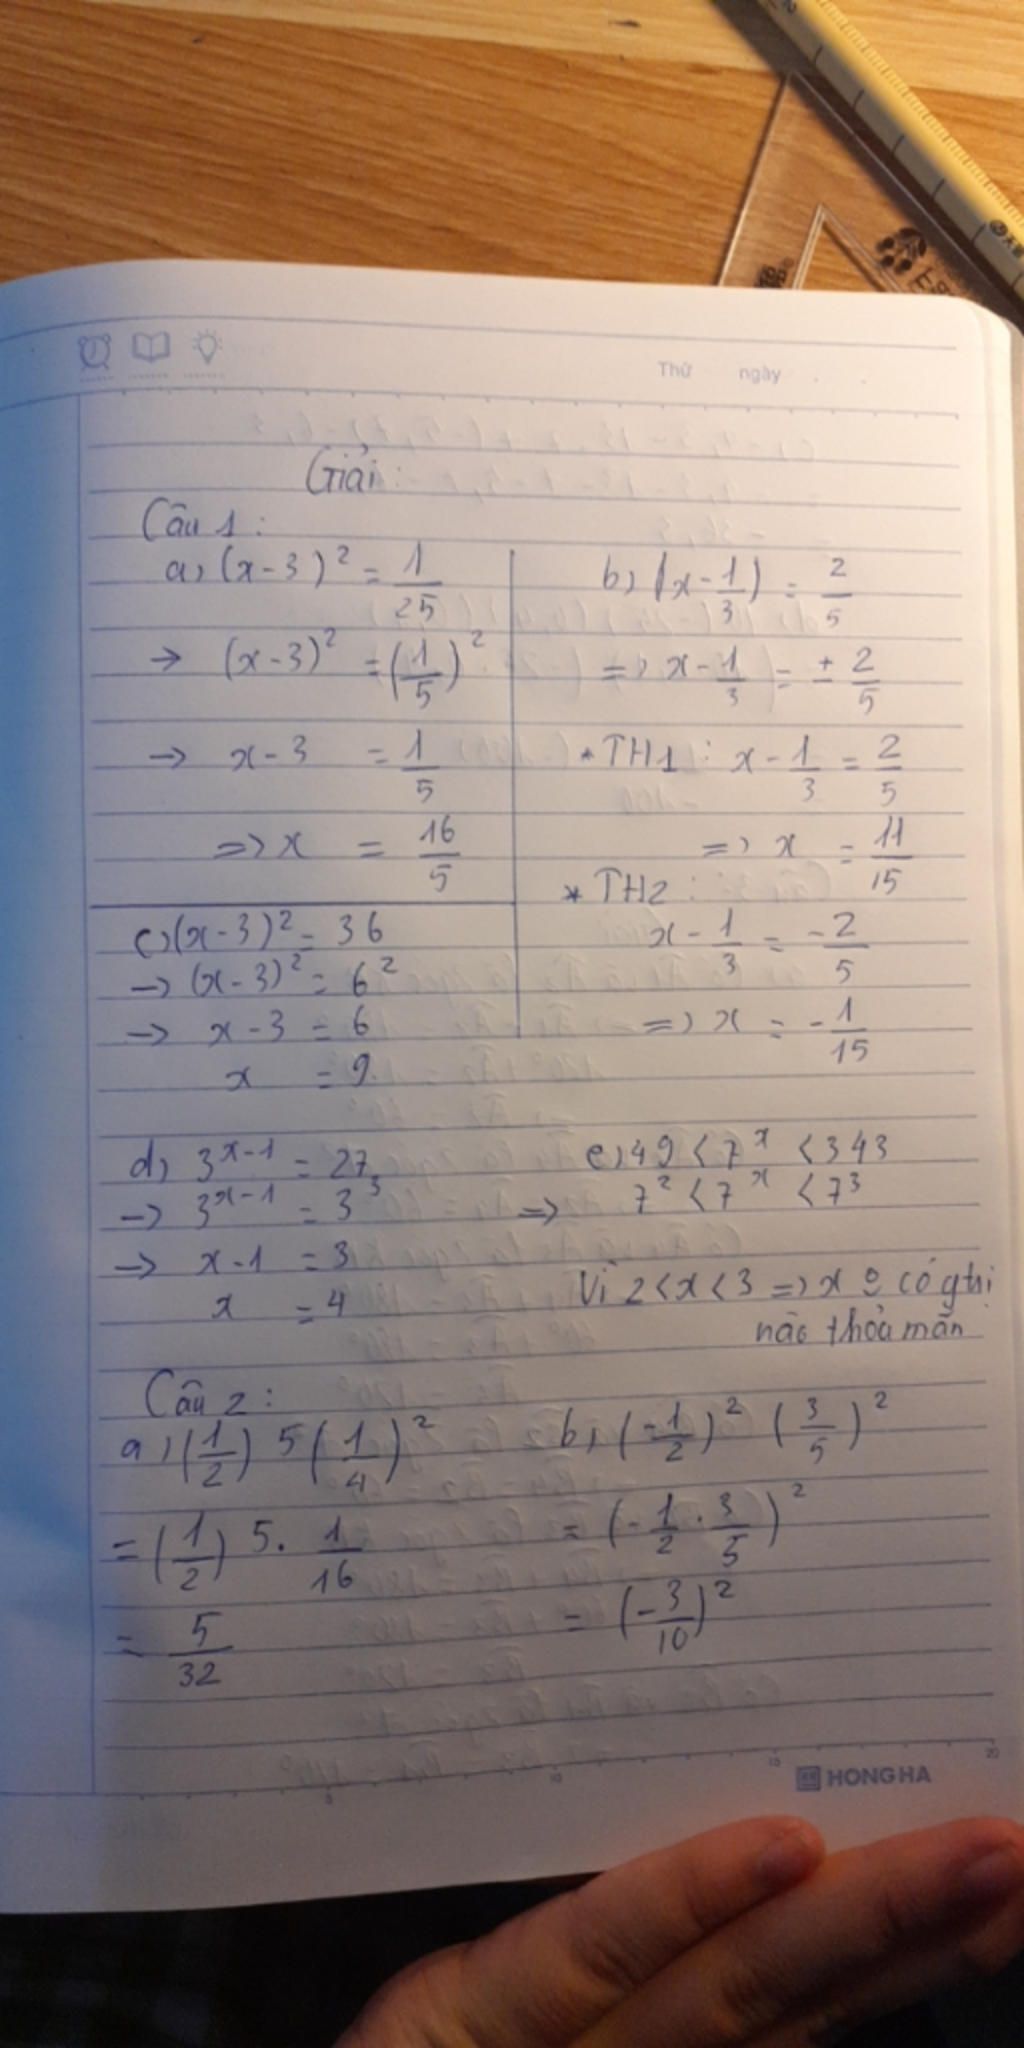 Thứ ngày
Giải:
Câu 1:
a) (x-3)² = 1/25
→ (x-3)² = (1/5)²
→ x-3 = 1/5
=> x = 16/5
b) |x-1/3| = 2/5
=> x-1/3 = ± 2/5
* TH1: x-1/3 = 2/5
=> x = 11/15
* TH2:
x-1/3 = -2/5
=> x = -1/15
c) (x-3)² = 36
→ (x-3)² = 6²
→ x-3 = 6
x = 9.
d) 3ˣ⁻¹ = 27
→ 3ˣ⁻¹ = 3³
→ x-1 = 3
x = 4
e) 49 < 7ˣ < 343
=> 7² < 7ˣ < 7³
Vì 2 < x < 3 => x có gtrị
nào thỏa mãn
Câu 2:
a) (1/2) 5 (1/4)²
= (1/2) 5. 1/16
= 5/32
b) (-1/2)² (3/5)²
= (-1/2 . 3/5)²
= (-3/10)²
5 10 15 20
HONG HA